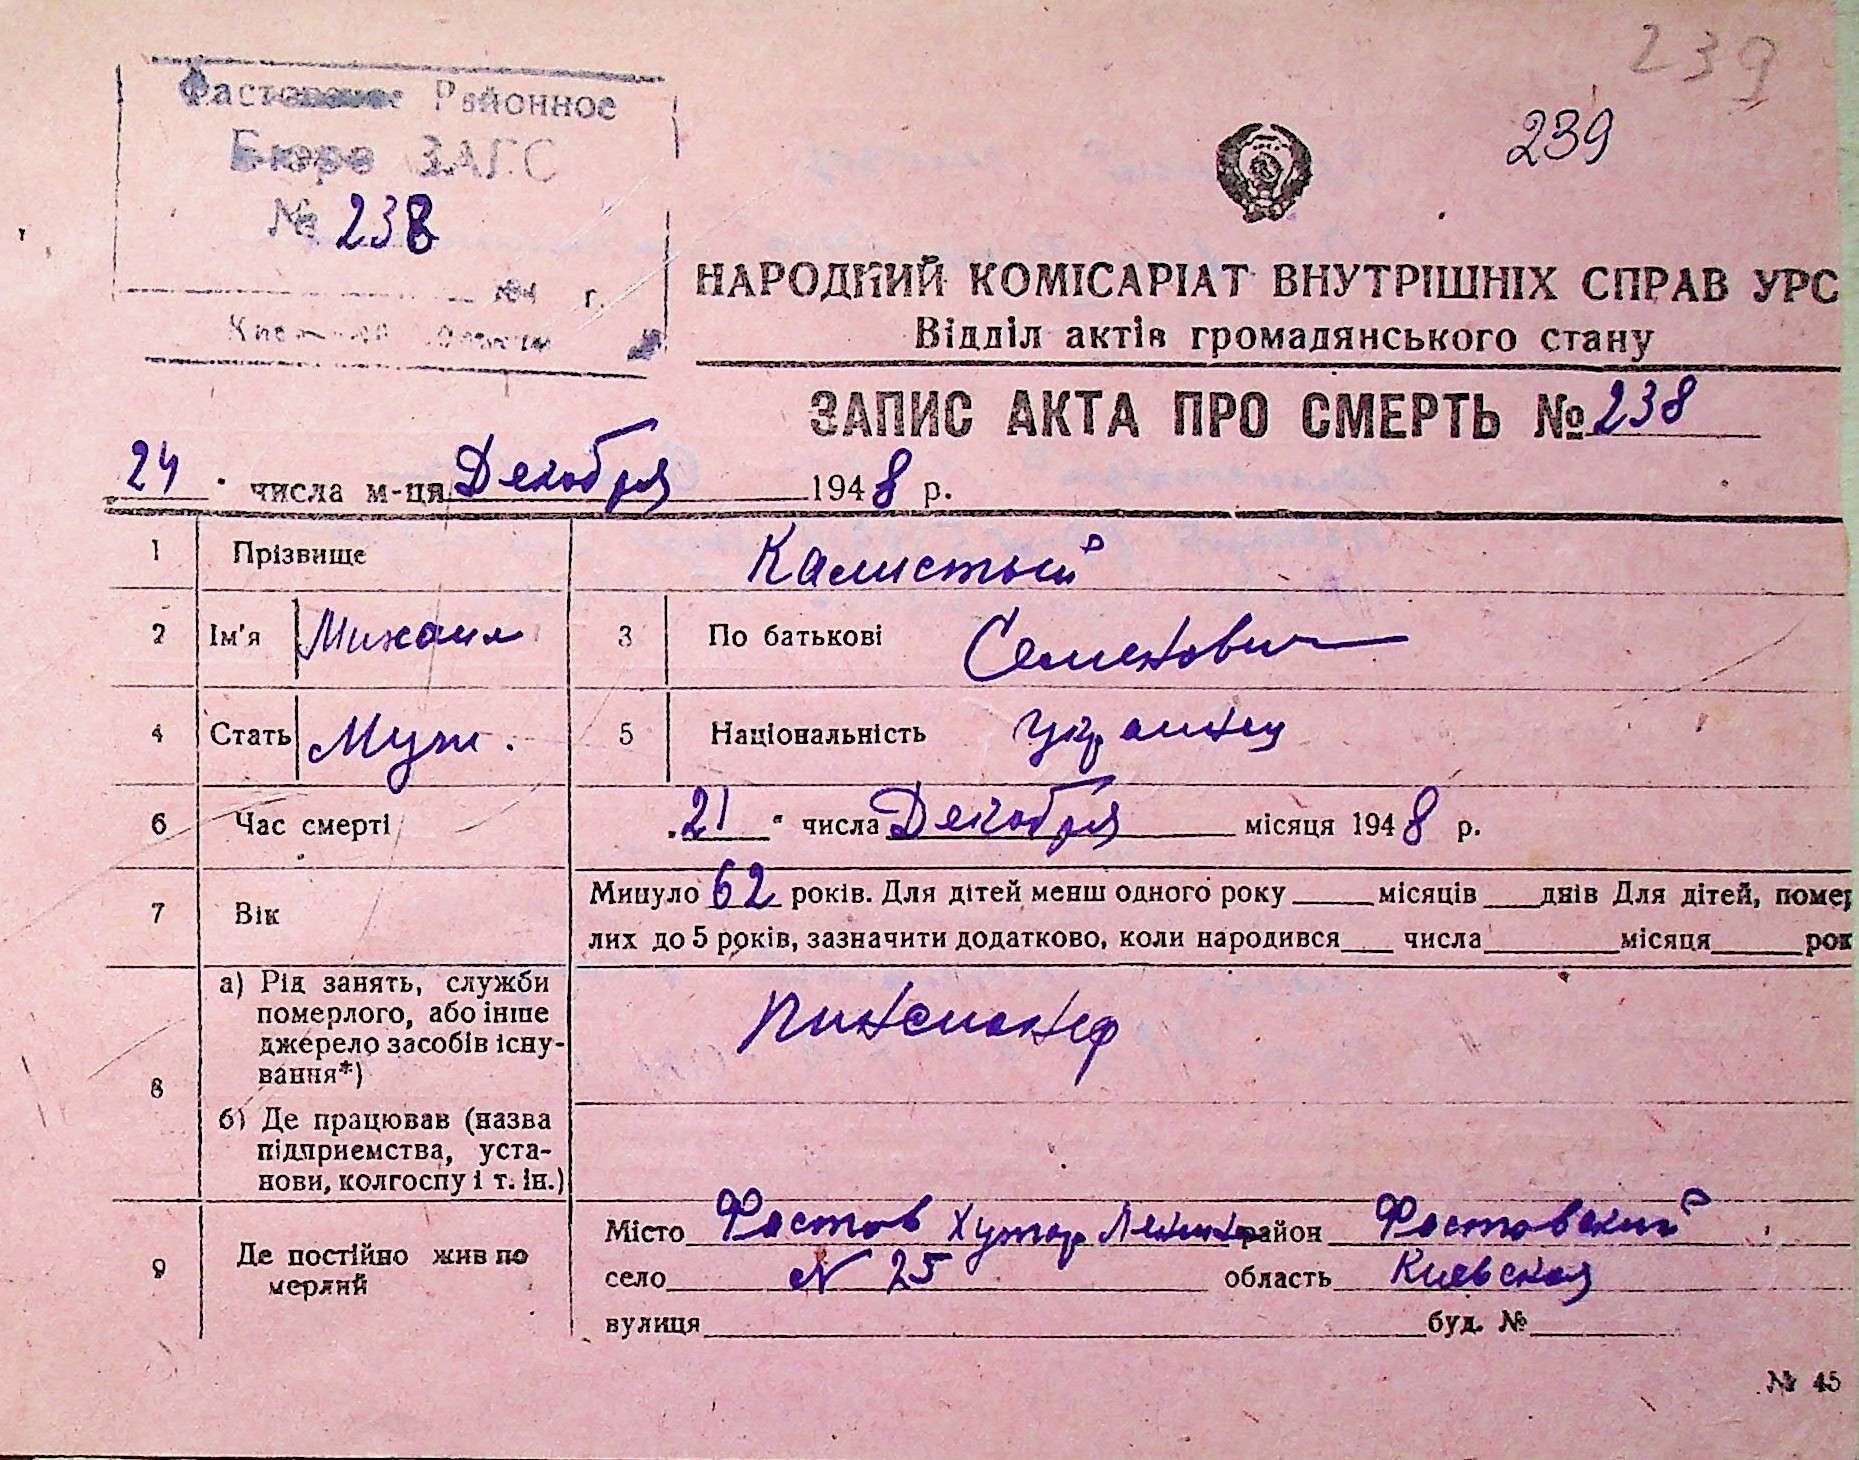 239
239
Фастовское Районное
Бюро ЗАГС
№ 238
194 г.
НАРОДНИЙ КОМІСАРІАТ ВНУТРІШНІХ СПРАВ УРС
Відділ актів громадянського стану
ЗАПИС АКТА ПРО СМЕРТЬ № 238
24 " числа м-ця Декобря 1948 р.
1 Прізвище Калистый
2 Ім'я Михаил 3 По батькові Семенович
4 Стать Муж. 5 Національність украинец
6 Час смерті „21" числа Декобря місяця 1948 р.
7 Вік Минуло 62 років. Для дітей менш одного року місяців днів Для дітей, помер
лих до 5 років, зазначити додатково, коли народився числа місяця рок
8 а) Рід занять, служби
померлого, або інше
джерело засобів існу-
вання*)
пинсионер
б) Де працював (назва
підприємства, уста-
нови, колгоспу і т. ін.)
9 Де постійно жив по
мерлий
Місто Фастов Хутор район Фастовский
село № 25 область Киевская
вулиця буд. №
№ 45